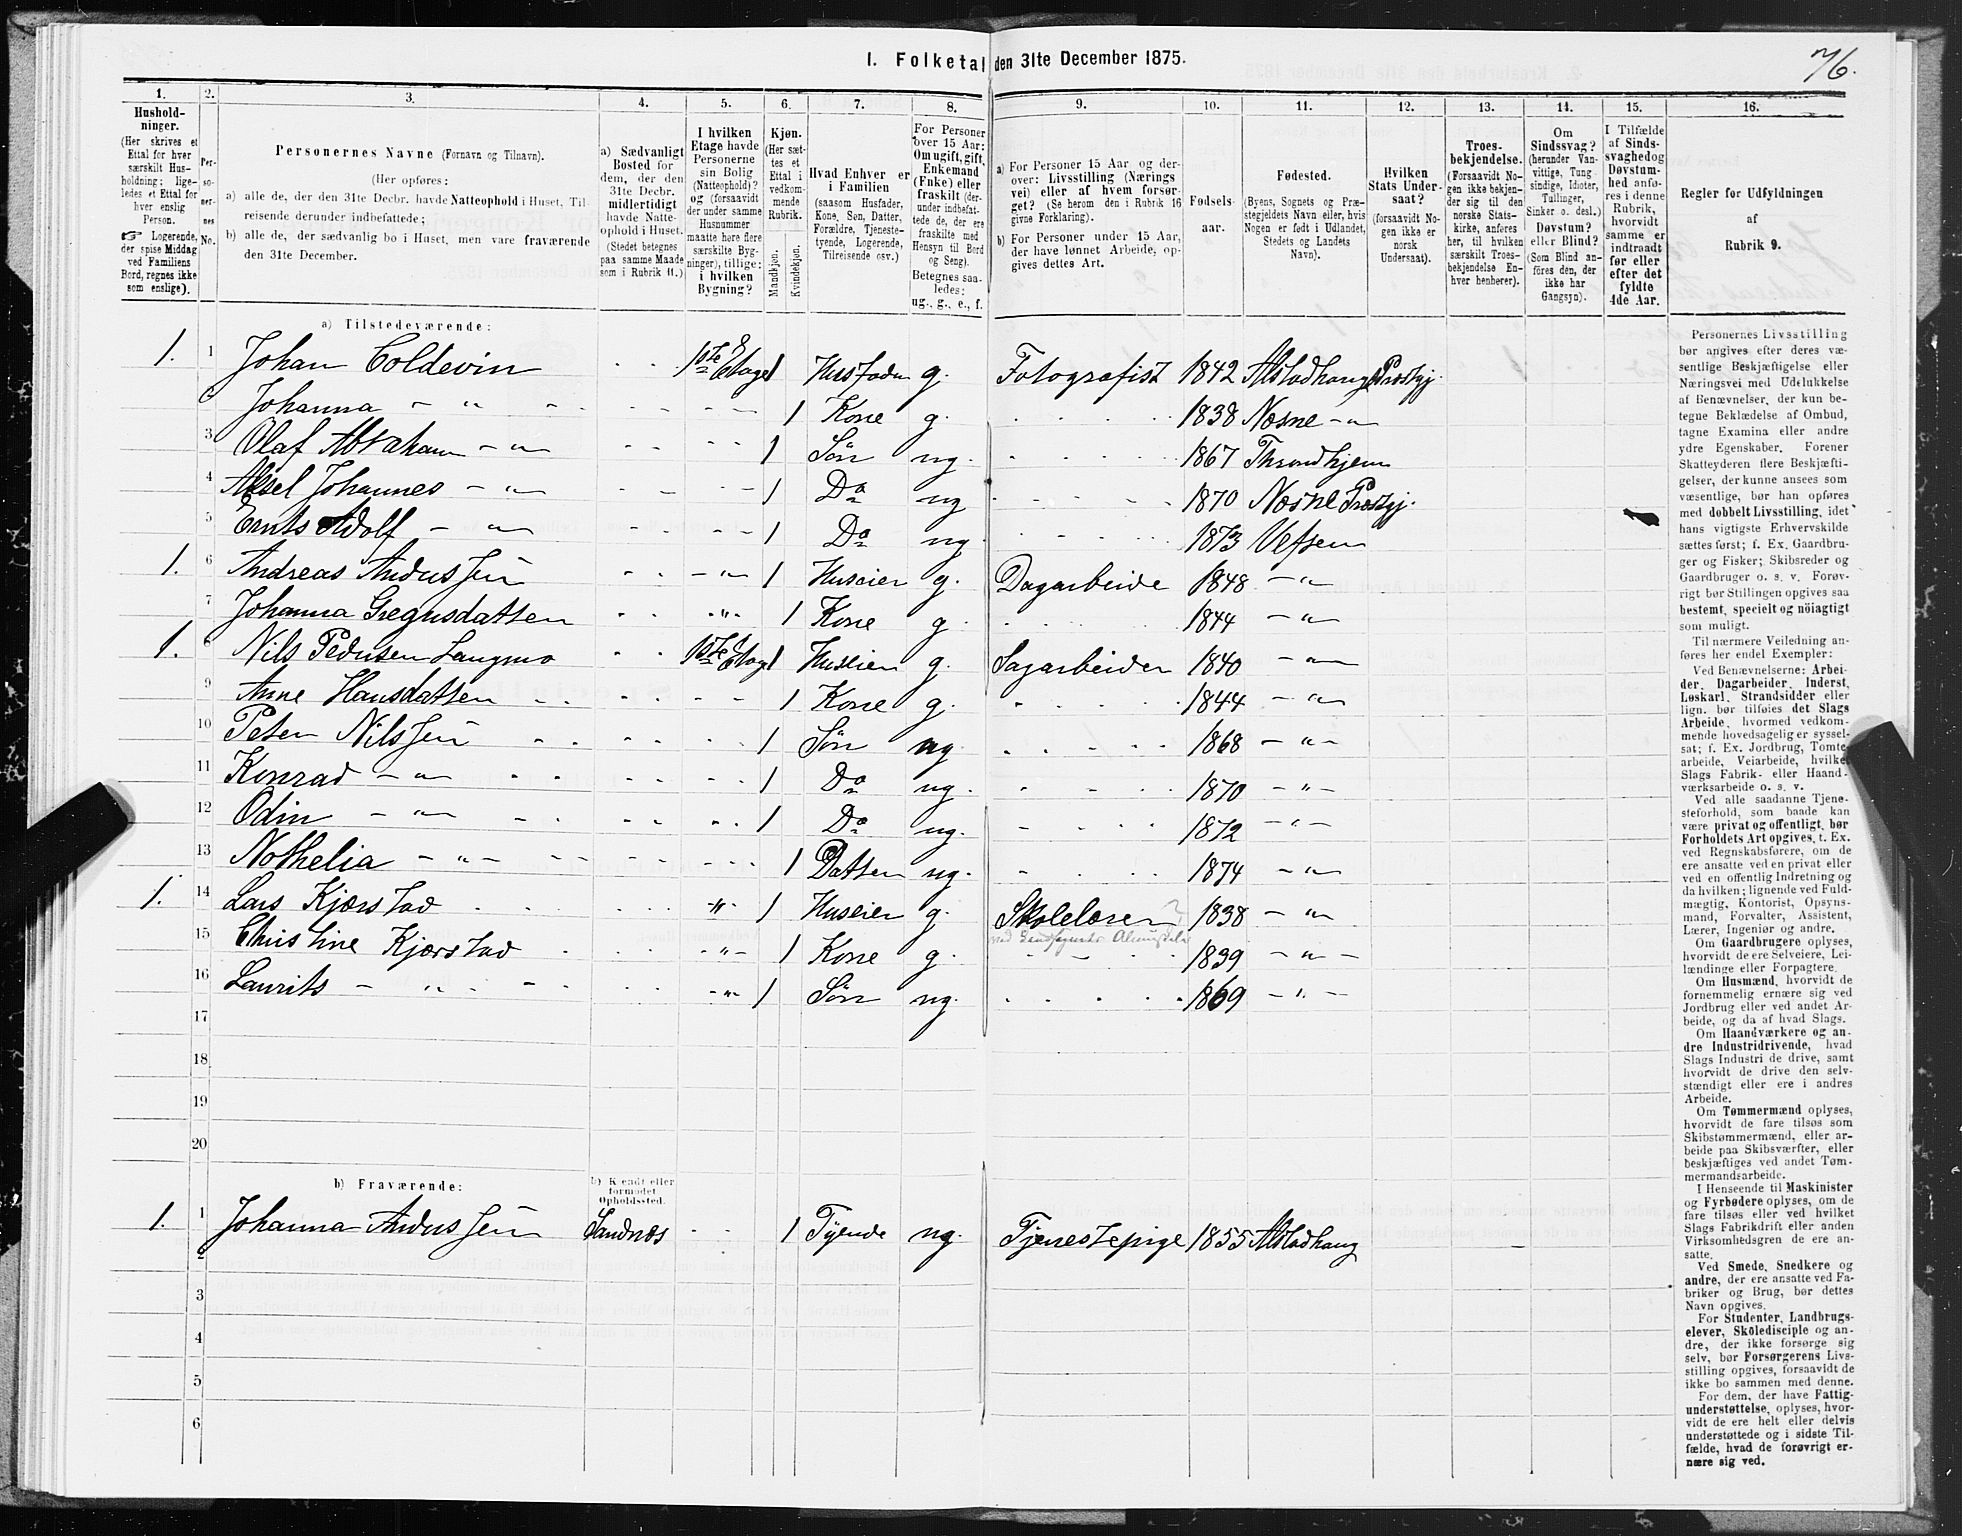 1. Folketal den 31te December 1875.
76.
1.
2.
3.
4.
5.
6.
7.
8.
9.
10.
11.
12.
13.
14.
15.
16.
Hushold-
ninger.
(Her skrives et
Ettal for hver
særskilt Hus-
holdning; lige-
ledes et Ettal for
hver enslig
Person.
☞ Logerende,
der spise Middag
ved Familiens
Bord, regnes ikke
som enslige).
Per-
so-
ner-
nes
No.
Personernes Navne (Fornavn og Tilnavn).
(Her opføres:
a) alle de, der den 31te Decbr. havde Natteophold i Huset, Til-
reisende derunder indbefattede;
b) alle de, der sædvanlig bo i Huset, men vare fraværende
den 31te December.
a) Sædvanligt
Bosted for
dem, der den
31te Decbr.
midlertidigt
havde Natte-
ophold i Huset.
(Stedet betegnes
paa samme Maade
som i Rubrik 11.)
I hvilken
Etage havde
Personerne
sin Bolig
(Natteophold)?
og (forsaavidt
der under samme
Husnummer
maatte høre flere
særskilte Byg-
ninger), tillige:
i hvilken
Bygning?
Kjøn.
(Her sæt-
tes et
Ettal i
vedkom-
mende
Rubrik.
Mandkjøn.
Kvindekjøn.
Hvad Enhver er
i Familien
(saasom Husfader,
Kone, Søn, Datter,
Forældre, Tjeneste-
tyende, Logerende,
Tilreisende osv.)
For Personer
over 15 Aar:
Om ugift, gift,
Enkemand
(Enke) eller
fraskilt
(derunder indbefat-
tede de, der ere
fraskilte med
Hensyn til Bord
og Seng).
Betegnes saa-
ledes:
ug., g., e., f.
a) For Personer 15 Aar og der-
over: Livsstilling (Nærings
vei) eller af hvem forsør-
get? (Se herom den i Rubrik 16
givne Forklaring).
b) For Personer under 15 Aar,
der have lønnet Arbeide, op-
gives dettes Art.
Fødsels-
aar.
Fødested.
(Byens, Sognets og Præ-
stegjeldets Navn eller, hvis
Nogen er født i Udlandet,
Stedets og Landets
Navn).
Hvilken
Stats Under-
saat?
(forsaavidt No-
gen ikke er
norsk
Undersaat).
Troes-
bekjendelse.
(Forsaavidt No-
gen ikke bekjen-
der sig til den
norske Stats-
kirke, anføres
her, til hvilken
særskilt Troes-
bekjendelse En-
hver henhører).
Om
Sindssvag?
(herunder Van-
vittige, Tung
sindige, Idioter,
Tullinger,
Sinker o. desl.)
Døvstum?
eller Blind?
(Som Blind an-
føres den, der
ikke har
Gangsyn).
I Tilfælde
af Sinds-
svaghed og
Døvstum-
hed anfø-
res i denne
Rubrik,
hvorvidt
samme er
indtraadt
før eller
efter det
fyldte
4de Aar.
Regler for Udfyldningen
af
Rubrik 9.
a) Tilstedeværende:
1. 1 Johan Coldevin 1ste Etage 1 Husfader g. Fotografist 1842 Alstadhaug Præstgj.
Johanna - " - 1 Kone g. 1838 Næsne - " -
3 Olaf Abraham - " - 1 Søn ug. 1867 Throndhjem
4 Aksel Johannes - " - 1 Do ug 1870 Næsne Præstgj.
5 Ernts Adolf - " - 1 Do ug. 1873 Vefsen
1. 6 Andreas Anderssen - " - 1 Huseier g. Dagarbeide 1848 - " -
7 Johanna Gregusdatter " 1 Kone g. 1844 - " -
1. 8 Nils Pedersen Langmo 1ste Etage 1 Huseier g. Sagarbeider 1840 - " -
9 Anne Hansdatter 1 Kone g. 1844 - " -
10 Peter Nilssen 1 Søn ug. 1868 - " -
11 Konrad - " - 1 Do ug. 1870 - " -
12 Odin - " - 1 Do ug. 1872 - " -
13 Nothelia - " - 1 Datter ug. 1874 - " -
1. 14 Lars Kjærstad " 1 Huseier g. Skolelærer 1838 - " -
15 Christine Kjærstad - " - 1 Kone g. 1839 - " -
16 Laurits - " - - " - 1 Søn ug. 1869 - " -
17
18
19
20
b) Fraværende:
b) Kjendt eller
formodet
Opholdssted.
1. 1 Johanna Anderssen Sandnæs 1 Tyende ug. Tjenestepige 1855 Alstadhaug
2
3
4
5
6
Personernes Livsstilling
bør angives efter deres væ-
sentlige Beskjæftigelse eller
Næringsvei med Udelukkelse
af Benævnelser, der kun be-
tegne Beklædelse af Ombud,
tagne Examina eller andre
ydre Egenskaber. Forener
Skatteyderen flere Beskjæfti-
gelser, der kunne ansees som
væsentlige, bør han opføres
med dobbelt Livsstilling, idet
hans vigtigste Erhvervskilde
sættes først; f. Ex. Gaardbru-
ger og Fisker; Skibsreder og
Gaardbruger o. s. v. Forøv-
rigt bør Stillingen opgives saa
bestemt, specielt og nöiagtigt
som muligt.
Til nærmere Veiledning an-
føres her endel Exempler:
Ved Benævnelserne: Arbei-
der, Dagarbeider, Inderst,
Løskarl, Strandsidder eller
lign. bør tilføies det Slags
Arbeide, hvormed vedkom-
mende hovedsagelig er syssel-
sat; f. Ex. Jordbrug, Tomte-
arbeide, Veiarbeide, hvilket
Slags Fabrik- eller Haand-
værksarbeide o. s. v.
Ved alle saadanne Tjene-
steforhold, som baade kan
være privat og offentligt, bør
Forholdets Art opgives, t. Ex.
ved Regnskabsførere, om de
ere ansatte ved en privat eller
ved en offentlig Indretning og
da hvilken; lignende ved Fuld-
mægtig, Kontorist, Opsyns-
mand, Forvalter, Assistent,
Lærer, Ingeniør og andre.
Om Gaardbrugere oplyses,
hvorvidt de ere Selveiere, Lei-
lændinge eller Forpagtere.
Om Husmænd, hvorvidt de
fornemmelig ernære sig ved
Jordbrug eller ved andet Ar-
beide, og da af hvad Slags.
Om Haandværkere og an-
dre Industridrivende, hvad
Slags Industri de drive, samt
hvorvidt de drive den selv-
stændigt eller ere i andres
Arbeide.
Om Tømmermænd oplyses,
hvorvidt de fare tilsøs som
Skibstømmermænd, eller ar-
beide paa Skibsværfter, eller
beskjæftiges ved andet Tøm-
mermandsarbeide.
I Henseende til Maskinister
og Fyrbødere oplyses, om de
fare tilsøs eller ved hvilket
Slags Fabrikdrift eller anden
Virksomhedsgren de ere an-
satte.
Ved Smede, Snedkere og
andre, der ere ansatte ved Fa-
briker og Brug, bør dettes
Navn opgives.
For Studenter, Landbrugs-
elever, Skoledisciple og an-
dre, der ikke forsørge sig
selv, bør Forsørgerens Livs-
stilling opgives, forsaavidt de
ikke bo sammen med denne.
For dem, der have Fattig-
understøttelse, oplyses, hvor-
vidt de ere helt eller delvis
understøttede og i sidste Til-
fælde, hvad de forøvrigt er-
nære sig ved.